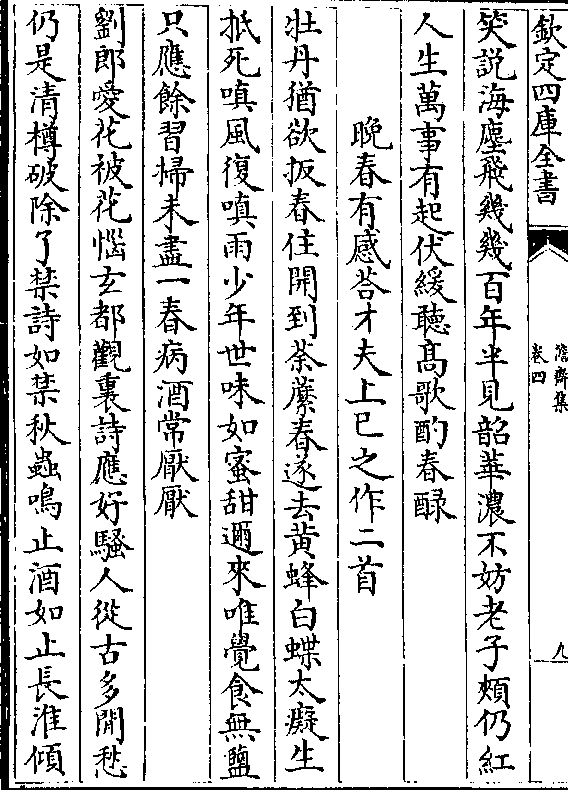 欽定四庫全書
澹齋集
卷四
九
笑説海塵飛幾幾百年半見韶華濃不妨老子頰仍紅
人生萬事有起伏緩聽髙歌酌春醁
晚春有感荅才夫上巳之作二首
牡丹猶欲扳春住開到荼䕷春遂去黄蜂白蝶太癡生
抵死嗔風復嗔雨少年世味如蜜甜邇來唯覺食無鹽
只應餘習掃未盡一春病酒常厭厭
劉郎愛花被花惱玄都觀裏詩應好騷人從古多閒愁
仍是清樽破除了禁詩如禁秋蟲鳴止酒如止長淮傾